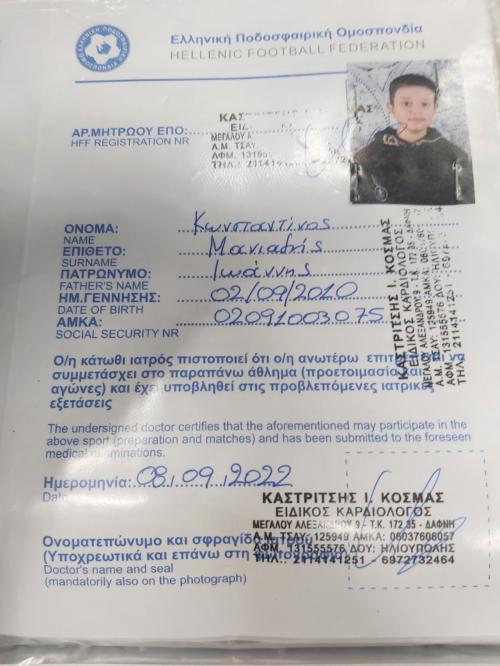 Ελληνική Ποδοσφαιρική Ομοσπονδία
HELLENIC FOOTBALL FEDERATION
ΑΡ.ΜΗΤΡΩΟΥ ΕΠΟ:
HFF REGISTRATION NR
ΚΑΣΤΡΙΤΣΗΣ Ι.
ΜΕΓΑΛΟΥ Α
Α.Μ. ΤΣΑΥ.
ΑΦΜ. 131555
ΤΗΛ.: 2114141
ΟΝΟΜΑ: Κωνσταντίνος
NAME
ΕΠΙΘΕΤΟ: Μανιαδής
SURNAME
ΠΑΤΡΩΝΥΜΟ: Ιωάννης
FATHER'S NAME
ΗΜ.ΓΕΝΝΗΣΗΣ: 02/09/2010
DATE OF BIRTH
ΑΜΚΑ: 02091003075
SOCIAL SECURITY NR
ΚΑΣΤΡΙΤΣΗΣ Ι. ΚΟΣΜΑΣ
ΕΙΔΙΚΟΣ ΚΑΡΔΙΟΛΟΓΟΣ
ΜΕΓΑΛΟΥ ΑΛΕΞΑΝΔΡΟΥ 9 - Τ.Κ. 172 35 - ΔΑΦΝΗ
Α.Μ. ΤΣΑΥ: 125949 ΑΜΚΑ:
ΑΦΜ. 131555576 ΔΟΥ: ΗΛΙΟΥΠ
ΤΗΛ.: 2114141251
Ο/η κάτωθι ιατρός πιστοποιεί ότι ο/η ανωτέρω να
συμμετάσχει στο παραπάνω άθλημα (προετοιμασία και
αγώνες) και έχει υποβληθεί στις προβλεπόμενες ιατρικές
εξετάσεις
The undersigned doctor certifies that the aforementioned may participate in the
above sport (preparation and matches) and has been submitted to the foreseen
medical examinations.
Ημερομηνία: 08.09.2022
Date
ΚΑΣΤΡΙΤΣΗΣ Ι. ΚΟΣΜΑΣ
ΕΙΔΙΚΟΣ ΚΑΡΔΙΟΛΟΓΟΣ
ΜΕΓΑΛΟΥ ΑΛΕΞΑΝΔΡΟΥ 9 - Τ.Κ. 172 35 - ΔΑΦΝΗ
Α.Μ. ΤΣΑΥ: 125949 ΑΜΚΑ: 06037606057
ΑΦΜ. 131555576 ΔΟΥ: ΗΛΙΟΥΠΟΛΗΣ
ΤΗΛ.: 2114141251 - 6972732464
Ονοματεπώνυμο και σφραγίδα ιατρού
(Υποχρεωτικά και επάνω στη φωτογραφία)
Doctor's name and seal
(mandatorily also on the photograph)